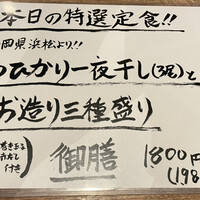 本日の特選定食!!
岡県浜松より!!
めひかり一夜干し(3尾)と
お造り三種盛り
御膳
付き
1800円
(198